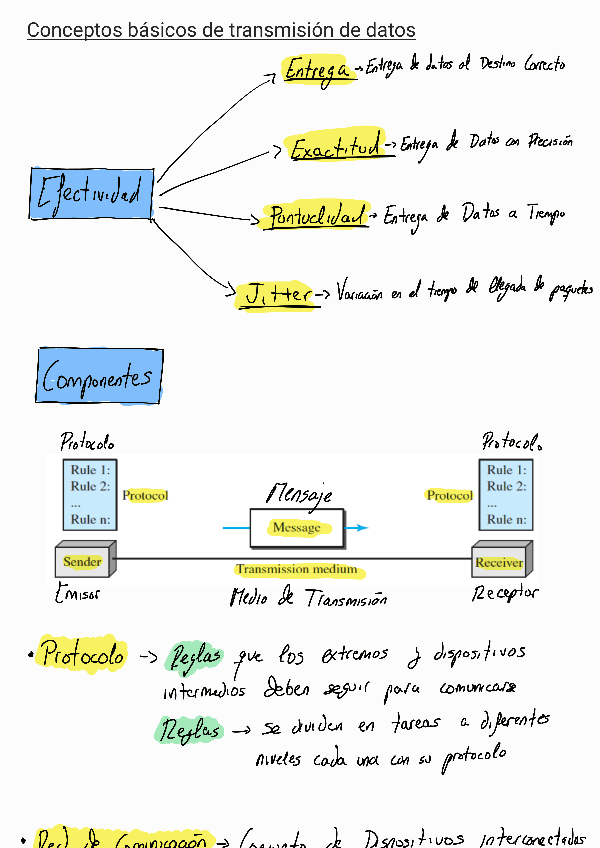 Conceptos básicos de transmisión de datos
Entrega -> Entrega de datos al Destino Correcto
Exactitud -> Entrega de Datos con Precisión
Efectividad
Pontuclidad -> Entrega de Datos a Tiempo
Jitter -> Variación en el tiempo de llegada de paquetes
Componentes
Protocolo
Protocolo
Rule 1:
Rule 2:
...
Rule n:
Protocol
Mensaje
Message
Protocol
Rule 1:
Rule 2:
...
Rule n:
Sender
Transmission medium
Receiver
Emisor
Medio de Transmisión
Receptor
• Protocolo -> Reglas que los extremos y dispositivos
intermedios deben seguir para comunicarse
Reglas -> se dividen en tareas a diferentes
niveles cada una con su protocolo
• Red de Comunicación -> Conjunto de Dispositivos interconectados